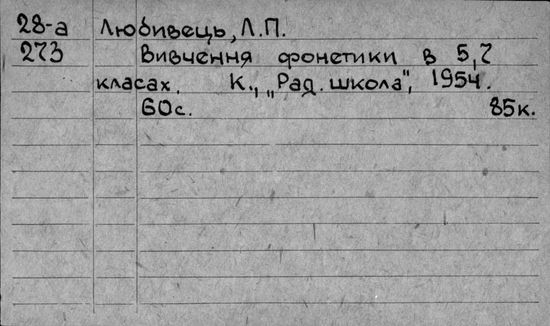 28-а Любивець, Л.П.
273 Вивчення фонетики в 5,7
класах. К., „Рад. школа", 1954.
60с. 85к.